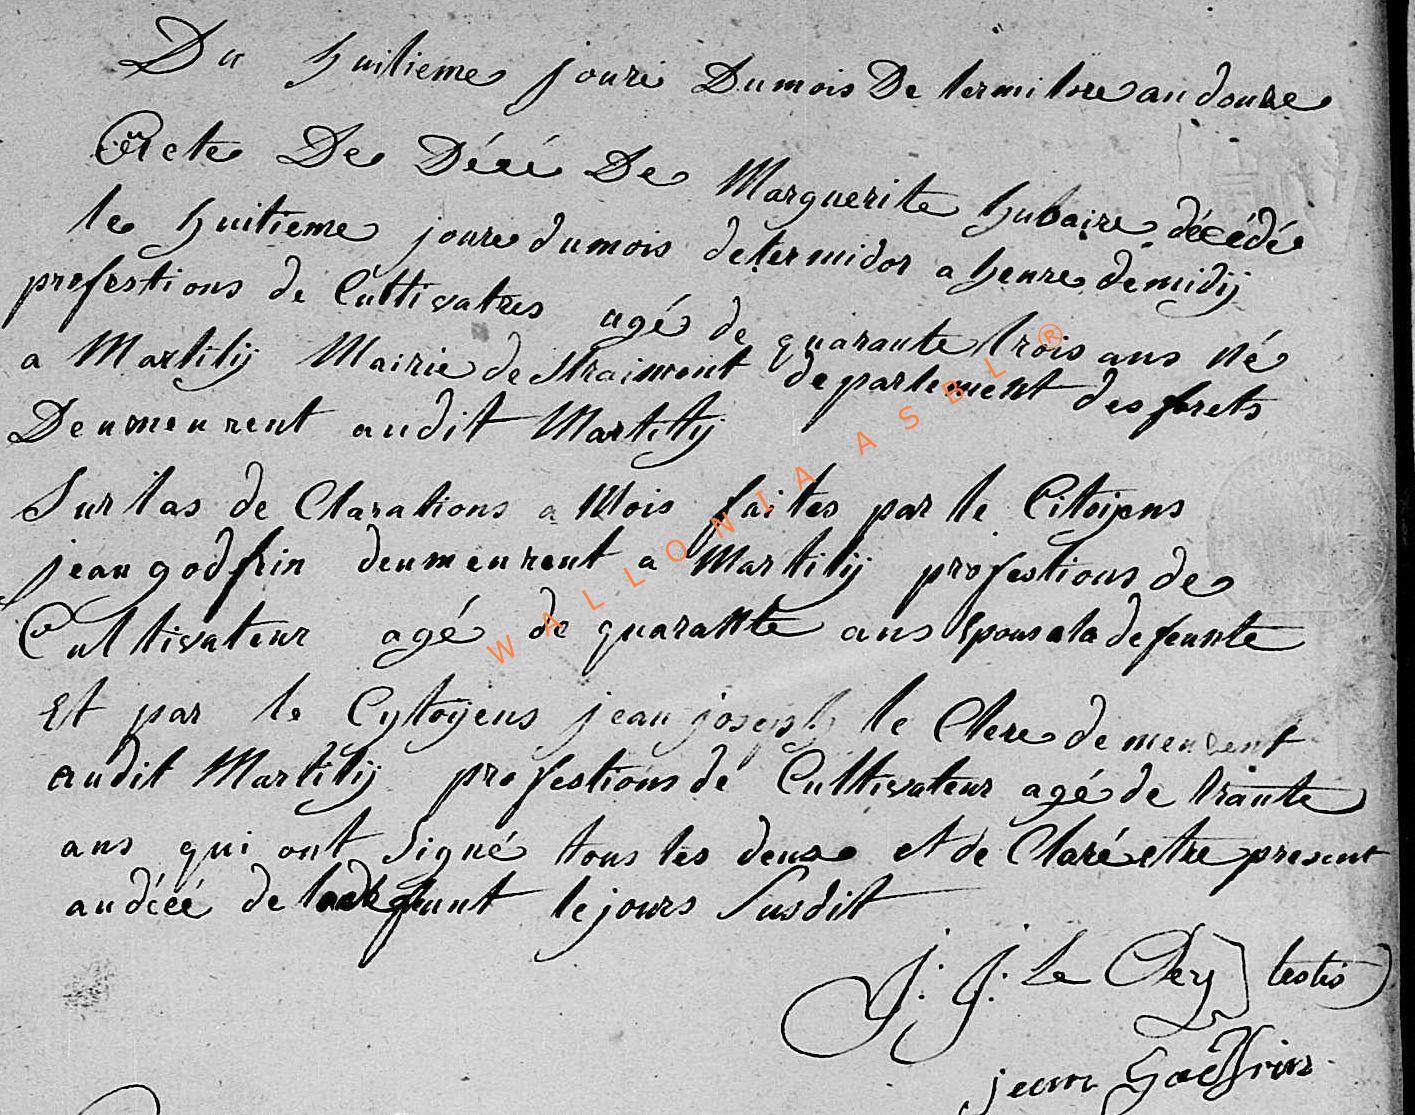 Du huitieme jouré Dumois De termitore an douze
Acte De Décé De Marguerite hubaire décédé
le huitieme joure dumois determidor a heure demidij
profestions de Cultivatres agé de quarante trois ans né
a Martilij Mairie de Straimont departement des forets
Deumeurent audit Martilij
Sur las de Clarations a Mois faites par le Citoijens
jean godfrin deumeurent a Martilij profestions de
Cultivateur agé de quarante ans Epouse la defeunte
Et par le Cytoÿens jean joseph le Clere demeurent
audit Martilij profestions de Cultivateur agé de trante
ans qui ont Signé tous les deuxe et de Claré etre present
audécé de ladefunt le jours Susdit
J. J. Le Clerq testis
jean Godfrin
WALLONIA ASBL ®